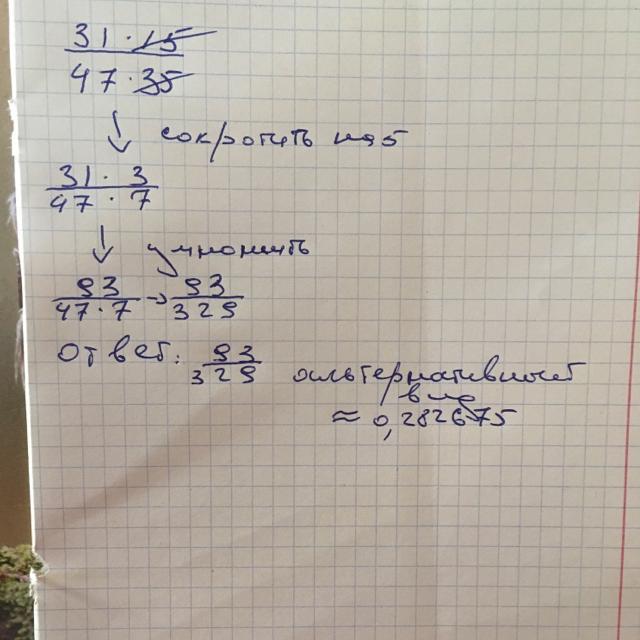 31 · 15
47 · 35
↓ сократить на 5
31 · 3
47 · 7
↓ умножить
93
47 · 7
→
93
329
Ответ: 93
329
альтернативный
вид
≈ 0,282675